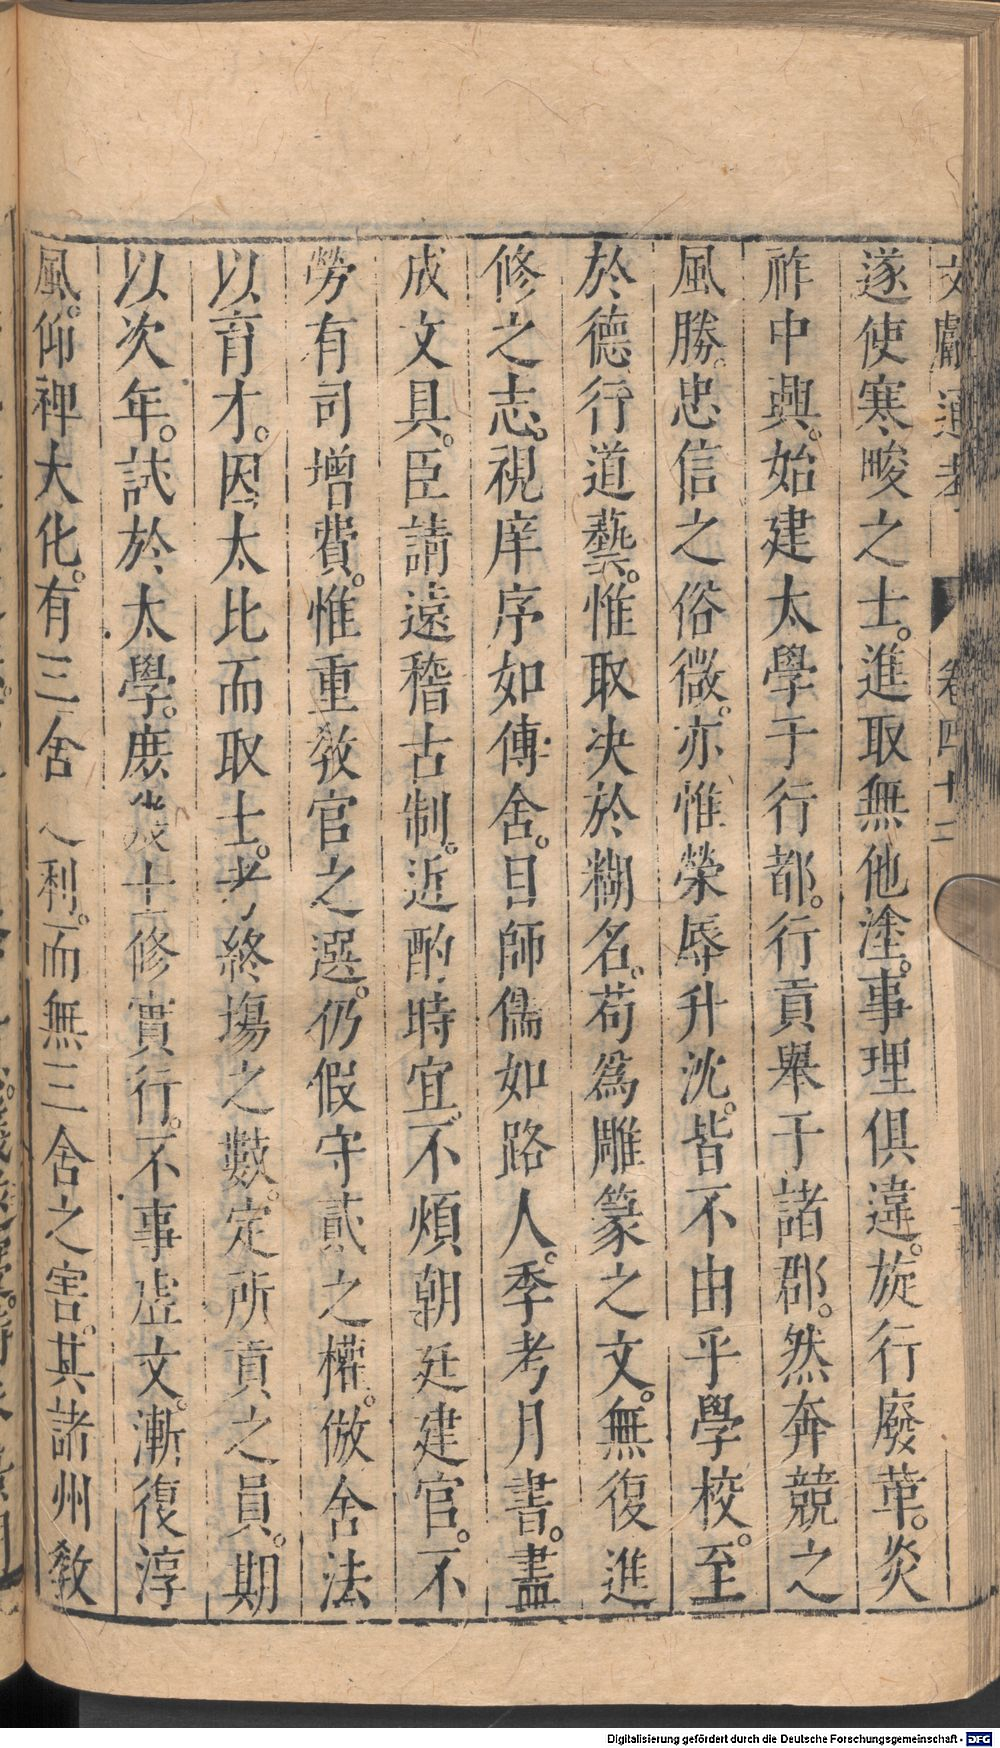 文獻通考 卷四十二
遂使寒畯之士。進取無他塗。事理俱違。旋行廢革。炎
祚中興。始建太學于行都。行貢舉于諸郡。然奔競之
風勝。忠信之俗微。亦惟榮辱升沈。皆不由乎學校。至
於德行道藝。惟取决於糊名。苟爲雕篆之文。無復進
修之志。視庠序如傳舍。目師儒如路人。季考月書。盡
成文具。臣請遠稽古制。近酌時宜。不煩朝廷建官。不
勞有司增費。惟重敎官之選。仍假守貳之權。倣舍法
以育才。因太比而取士。考終塲之數。定所貢之員。期
以次年。試於太學。庶幾士修實行。不事虛文。漸復淳
風。仰裨大化。有三舍之利。而無三舍之害。其諸州敎
Digitalisierung gefördert durch die Deutsche Forschungsgemeinschaft - DFG